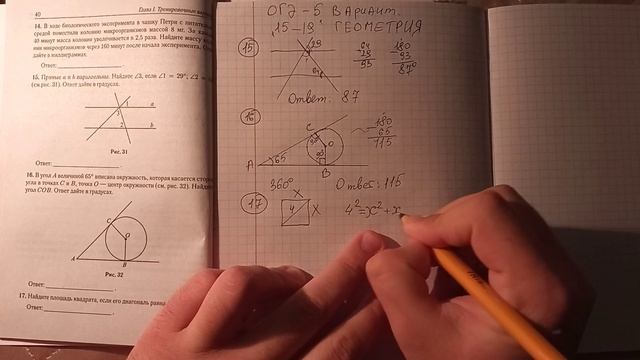 40
Глава I. Тренировочные
14. В ходе биологического эксперимента в чашку Петри с питате
средой поместили колонию микроорганизмов массой 8 мг. За ка
40 минут масса колонии увеличивается в 2,5 раза. Найдите массу ко
нии микроорганизмов через 160 минут после начала эксперимента. От
дайте в миллиграммах.
Ответ:
15. Прямые a и b параллельны. Найдите ∠3, если ∠1 = 29°; ∠2 =
(см. рис. 31). Ответ дайте в градусах.
1
a
3
2
b
Рис. 31
Ответ:
16. В угол A величиной 65° вписана окружность, которая касается сторо
угла в точках C и B, точка O — центр окружности (см. рис. 32). Найд
угол COB. Ответ дайте в градусах.
C
O
A
B
Рис. 32
Ответ:
17. Найдите площадь квадрата, если его диагональ равна
Ответ:
ОГЭ - 5 Вариант.
15-19. ГЕОМЕТРИЯ
15
29
64
64
29
93
180
93
87°
Ответ: 87
16
C
90
O
90
A
65
B
180
65
115
360°
Ответ: 115
17
x
4
x
4²=x²+x